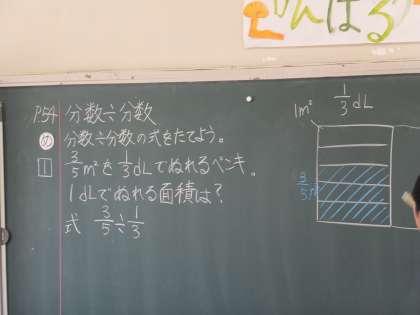 がんばろう
P.54 分数÷分数
め 分数÷分数の式をたてよう。
1 3/5 m²を1/3 dLでぬれるペンキ。
1dLでぬれる面積は?
式 3/5÷1/3
1/3 dL
1m²
3/5 m²